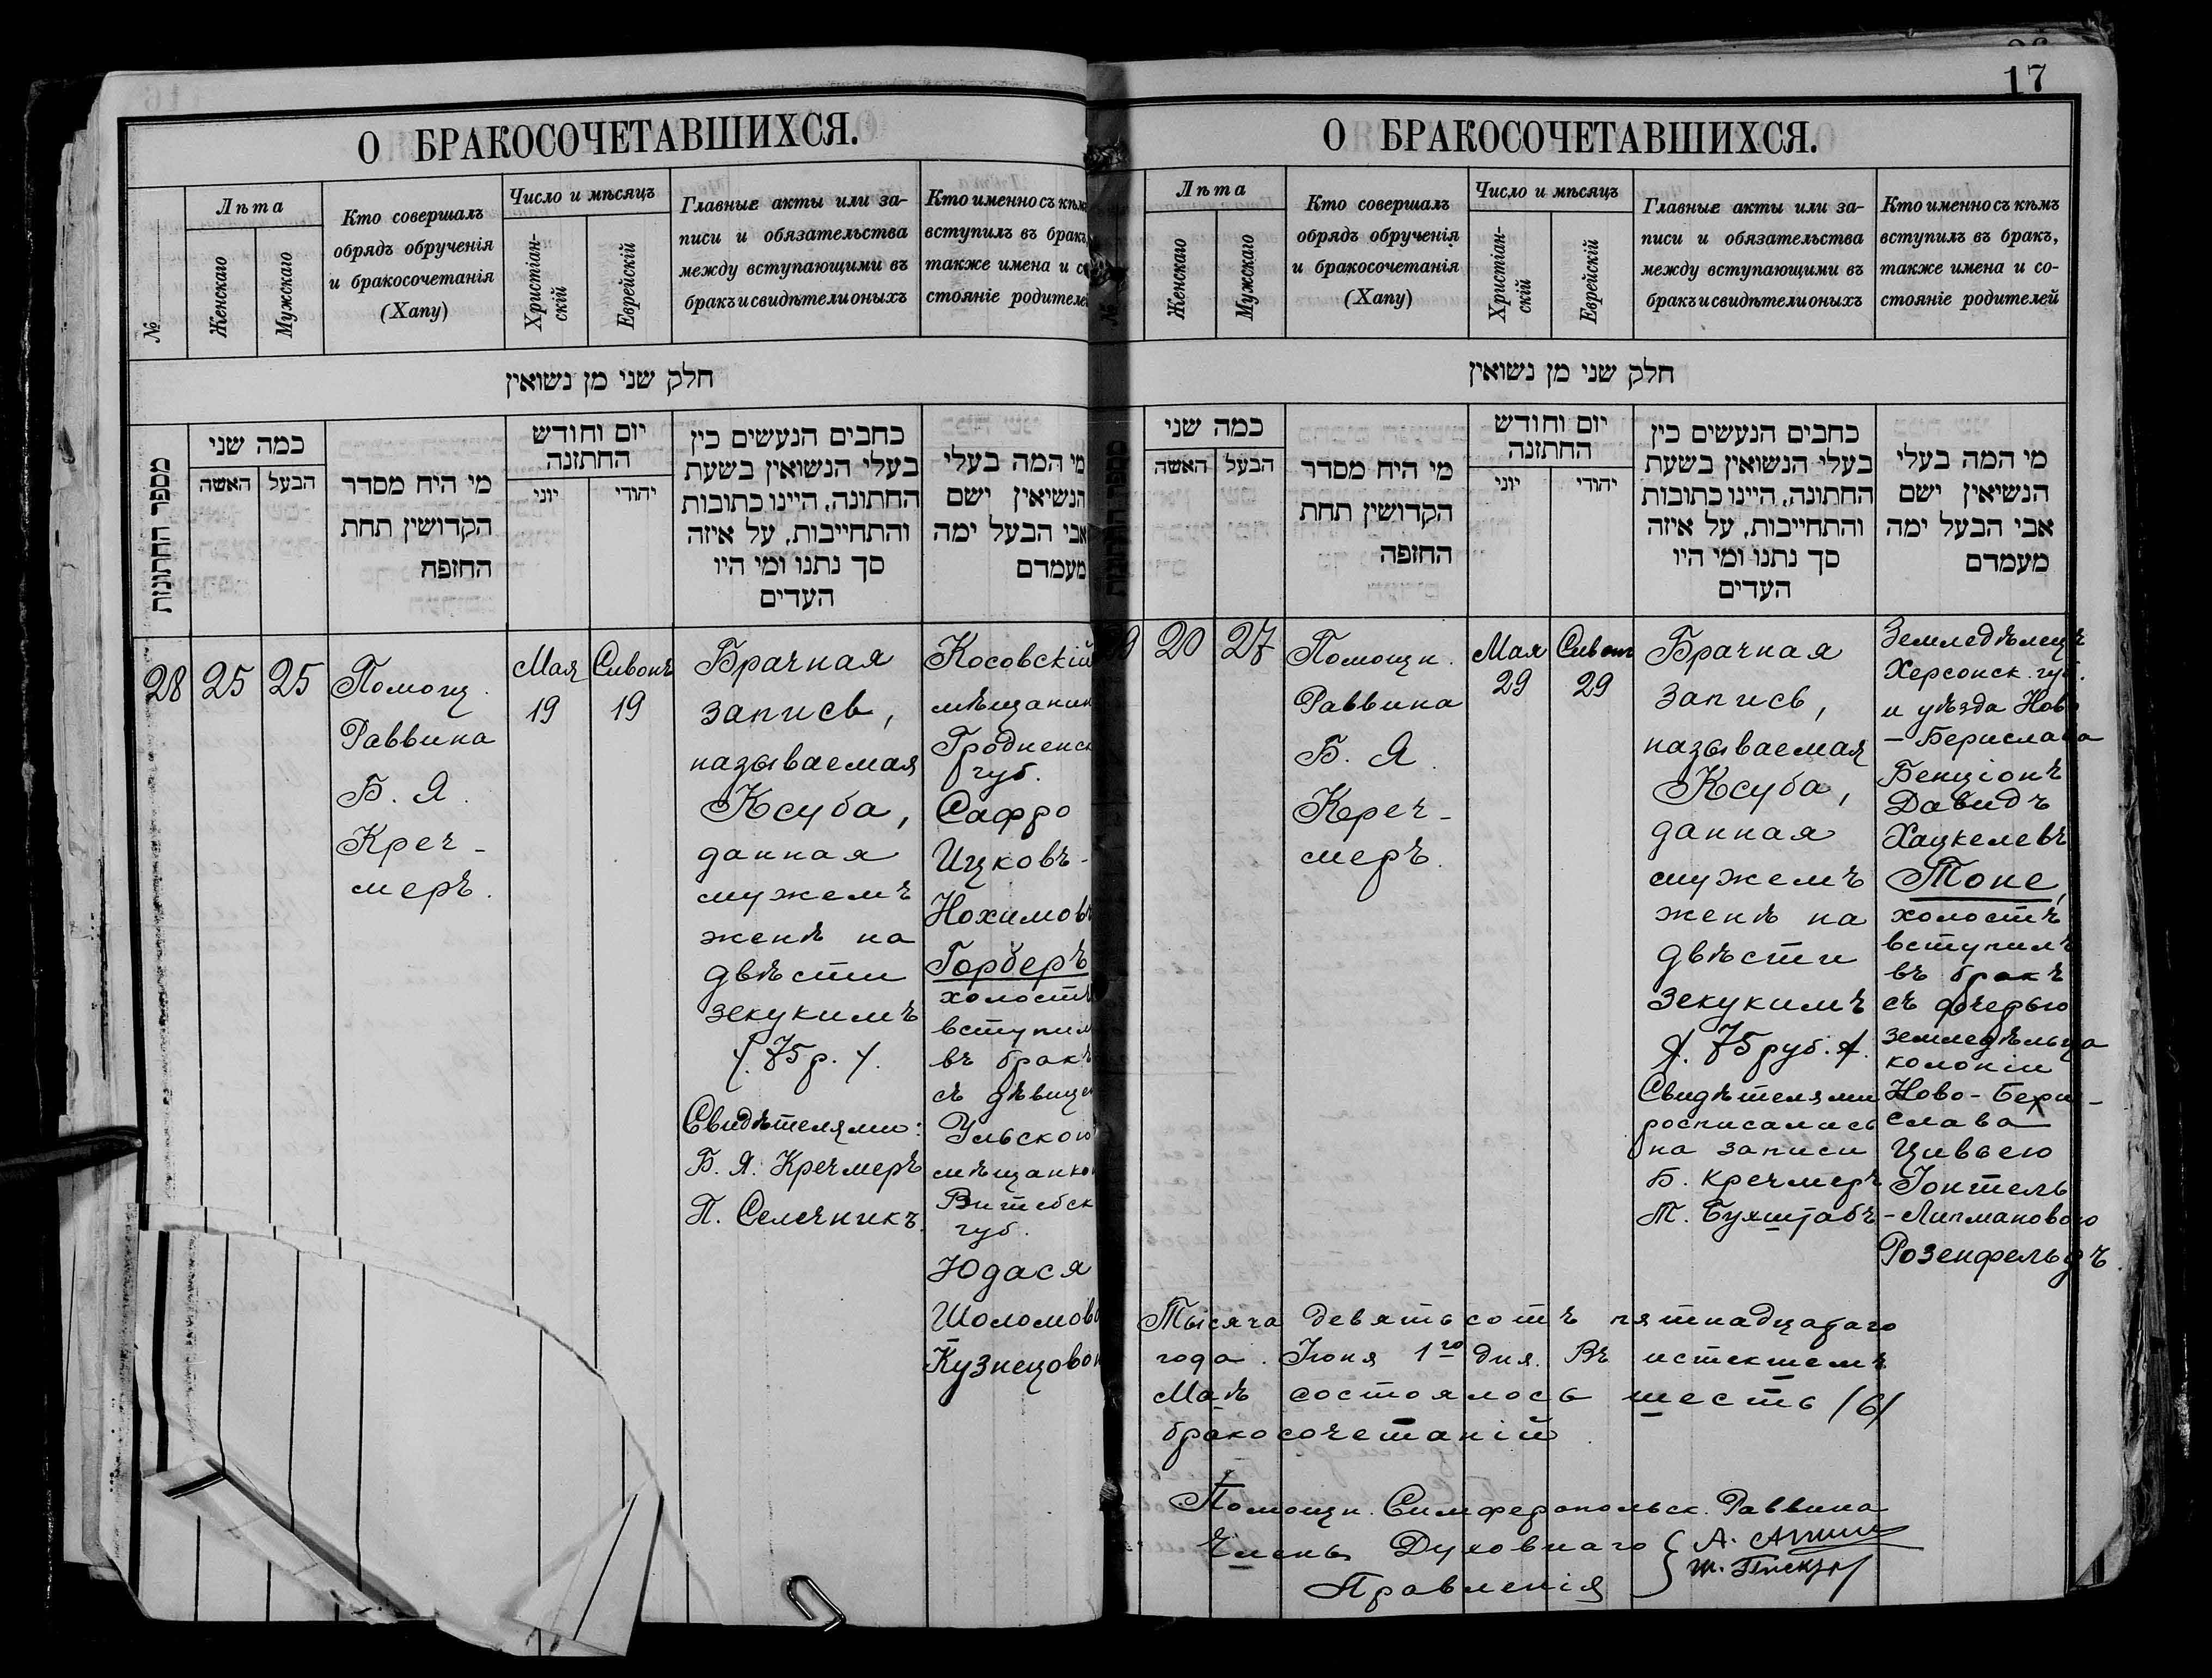 17
О БРАКОСОЧЕТАВШИХСЯ.
№
Лѣта
Женскаго
Мужскаго
Кто совершалъ
обрядъ обрученія
и бракосочетанія
(Хапу)
Число и мѣсяцъ
Христіан-
скій
Еврейскій
Главные акты или за-
писи и обязательства
между вступающими въ
бракъ и свидѣтели оныхъ
Кто именно съ кѣмъ
вступилъ въ бракъ,
также имена и со
стояніе родителей
חלק שני מן נשואין
מספר החתונות
כמה שני
האשה
הבעל
מי היה מסדר
הקדושין תחת
החופה
יום וחודש
החתונה
יוני
יהודי
כתבים הנעשים בין
בעלי הנשואין בשעת
החתונה, היינו כתובות
והתחייבות, על איזה
סך נתנו ומי היו
העדים
מי המה בעלי
הנשיאין ישם
אבי הבעל ימה
מעמדם
28
25
25
Помощ.
Раввина
Б. Я.
Креч-
меръ.
Мая
19
Сивонъ
19
Брачная
запись,
называемая
Ксуба,
данная
мужемъ
женѣ на
двѣсти
зекукимъ
/. 75 р. /.
Свидѣтелями:
Б. Я. Кречмеръ
П. Селечникъ.
Косовскій
мѣщанин
Гродненск
губ.
Сафро
Ицковъ-
Нохимовъ
Горберъ
холостъ
вступил
въ бракъ
съ дѣвицей
Ульскою
мѣщанко
Витебск
губ.
Юдася
Шоломово
Кузнецовой
О БРАКОСОЧЕТАВШИХСЯ.
№
Лѣта
Женскаго
Мужскаго
Кто совершалъ
обрядъ обрученія
и бракосочетанія
(Хапу)
Число и мѣсяцъ
Христіан-
скій
Еврейскій
Главные акты или за-
писи и обязательства
между вступающими въ
бракъ и свидѣтели оныхъ
Кто именно съ кѣмъ
вступилъ въ бракъ,
также имена и со-
стояніе родителей
חלק שני מן נשואין
כמה שני
האשה
הבעל
מי היה מסדר
הקדושין תחת
החופה
יום וחודש
החתונה
יוני
יהודי
כתבים הנעשים בין
בעלי הנשואין בשעת
החתונה, היינו כתובות
והתחייבות, על איזה
סך נתנו ומי היו
העדים
מי המה בעלי
הנשיאין ישם
אבי הבעל ימה
מעמדם
9
20
27
Помощн.
Раввина
Б. Я.
Креч-
меръ.
Мая
29
Сивон
29
Брачная
запись,
называемая
Ксуба,
данная
мужемъ
женѣ на
двѣсти
зекукимъ
/. 75 руб. /.
Свидѣтелями
росписались
на записи
Б. Кречмеръ
М. Бухштабъ
Земледѣлецъ
Херсонск. губ.
и уѣзда Ново
-Берислава
Бенціонъ
Давидъ
Хацкелевъ
Топе,
холостъ
вступилъ
въ бракъ
съ дочерью
земледѣльца
колоніи
Ново-Бери-
слава
Цивьею
Іонтель
-Липмановою
Розенфельдъ.
Тысяча девятьсотъ пятнадцатаго
года. Іюня 1го дня. Въ истекшемъ
Маѣ состоялось шесть /6/
бракосочетаній.
Помощн. Симферопольск. Раввина
Члены Духовнаго
Правленія